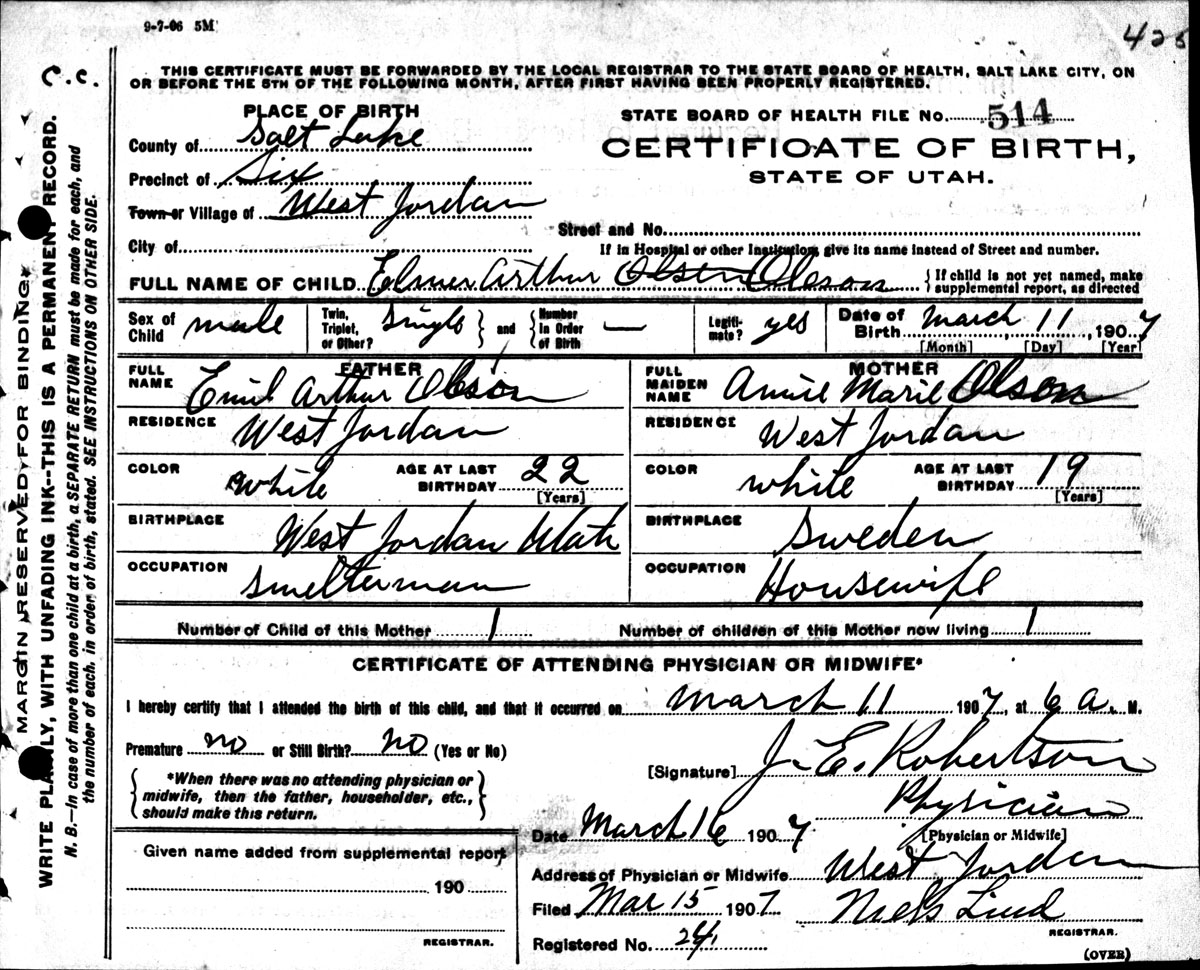 9-7-06 5M
425
C.C.
THIS CERTIFICATE MUST BE FORWARDED BY THE LOCAL REGISTRAR TO THE STATE BOARD OF HEALTH, SALT LAKE CITY, ON
OR BEFORE THE 5TH OF THE FOLLOWING MONTH, AFTER FIRST HAVING BEEN PROPERLY REGISTERED.
PLACE OF BIRTH
STATE BOARD OF HEALTH FILE No. 514
County of Salt Lake
CERTIFICATE OF BIRTH,
Precinct of Six
STATE OF UTAH.
Town or Village of West Jordan
Street and No.
City of
If in Hospital or other Institution, give its name instead of Street and number.
FULL NAME OF CHILD Elmer Arthur Olsen Olson {If child is not yet named, make
supplemental report, as directed
Sex of Child male Twin, Triplet, or Other? Single } and { Number in Order of Birth — Legitimate? yes Date of Birth March 11, 1907
[Month] [Day] [Year]
FATHER
MOTHER
FULL NAME Emil Arthur Olson
FULL MAIDEN NAME Annie Marie Olson
RESIDENCE West Jordan
RESIDENCE West Jordan
COLOR white AGE AT LAST BIRTHDAY 22 [Years]
COLOR white AGE AT LAST BIRTHDAY 19 [Years]
BIRTHPLACE West Jordan Utah
BIRTHPLACE Sweden
OCCUPATION Smelterman
OCCUPATION Housewife
Number of Child of this Mother 1 Number of children of this Mother now living 1
CERTIFICATE OF ATTENDING PHYSICIAN OR MIDWIFE*
I hereby certify that I attended the birth of this child, and that it occurred on March 11 1907, at 6 a. M.
Premature no or Still Birth? no (Yes or No)
[Signature] J. E. Robertson
*When there was no attending physician or
midwife, then the father, householder, etc.,
should make this return.
Physician
Date March 16 1907 [Physician or Midwife]
Given name added from supplemental report
Address of Physician or Midwife West Jordan
190
Filed Mar 15 1907 Niels Lind
REGISTRAR.
REGISTRAR.
Registered No. 24
(OVER)
MARGIN RESERVED FOR BINDING.
WRITE PLAINLY, WITH UNFADING INK--THIS IS A PERMANENT RECORD.
N. B.—In case of more than one child at a birth, a SEPARATE RETURN must be made for each, and
the number of each, in order of birth, stated. SEE INSTRUCTIONS ON OTHER SIDE.